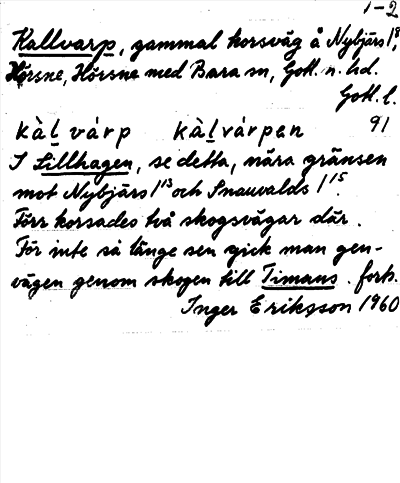 1-2
Kallvarp, gammal korsväg å Nybjärs 1⁸,
Hörsne, Hörsne med Bara sn, Gotl. n. hd.
Gotl. l.
kàḻ várp kàḻvárpen 91
I Lillhagen, se detta, nära gränsen
mot Nybjärs 1¹³ och Snauvalds 1¹⁵.
Förr korsades två skogsvägar där.
För inte så länge sen gick man gen-
vägen genom skogen till Timans. forts.
Inger Eriksson 1960